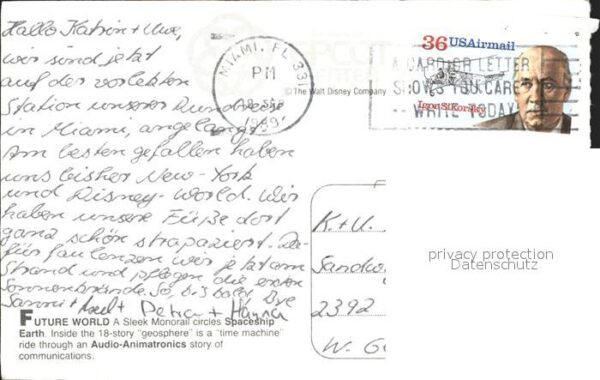 Hallo Katrin + Uwe,
wir sind jetzt
auf der vorletzten
Station unserer Rundreise
in Miami, angelangt.
Am besten gefallen haben
uns bisher New-York
und Disney-World. Wir
haben unsere Füße dort
ganz schön strapaziert. Da-
für faulenzen wir jetzt am
Strand und pflegen die ersten
Sonnenbrände. So, bis bald, Bye
+ Axel + Petra + Hanna
FUTURE WORLD A Sleek Monorail circles Spaceship
Earth. Inside the 18-story "geosphere" is a "time machine"
ride through an Audio-Animatronics story of
communications.
EPCOT
CENTER
© The Walt Disney Company
MIAMI, FL 331
PM
1989
A CARRIER LETTER
SHOWS YOU CARE
WRITE TODAY
36 USAirmail
Igor Sikorsky
K. + U.
Sandw
2392
W. G
privacy protection
Datenschutz